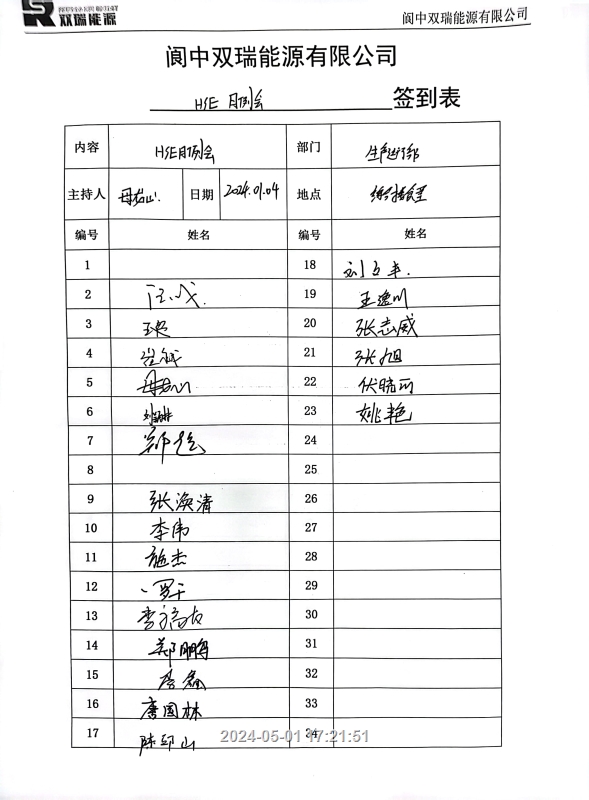 SR 双瑞能源
阆中双瑞能源有限公司
阆中双瑞能源有限公司
HSE 月例会 签到表
内容 HSE月例会 部门 生产运行部
主持人 母石山 日期 2024.01.04 地点
编号 姓名 编号 姓名
1 18
2 汪戈 19 王逸川
3 20 张志威
4 21 张旭
5 母石山 22 伏晓丽
6 23 姚艳
7 郑 24
8 25
9 张涣清 26
10 李伟 27
11 施杰 28
12 罗干 29
13 李 30
14 郑明鸣 31
15 李鑫 32
16 唐国林 33
17 陈邱山 34
2024-05-01 17:21:51